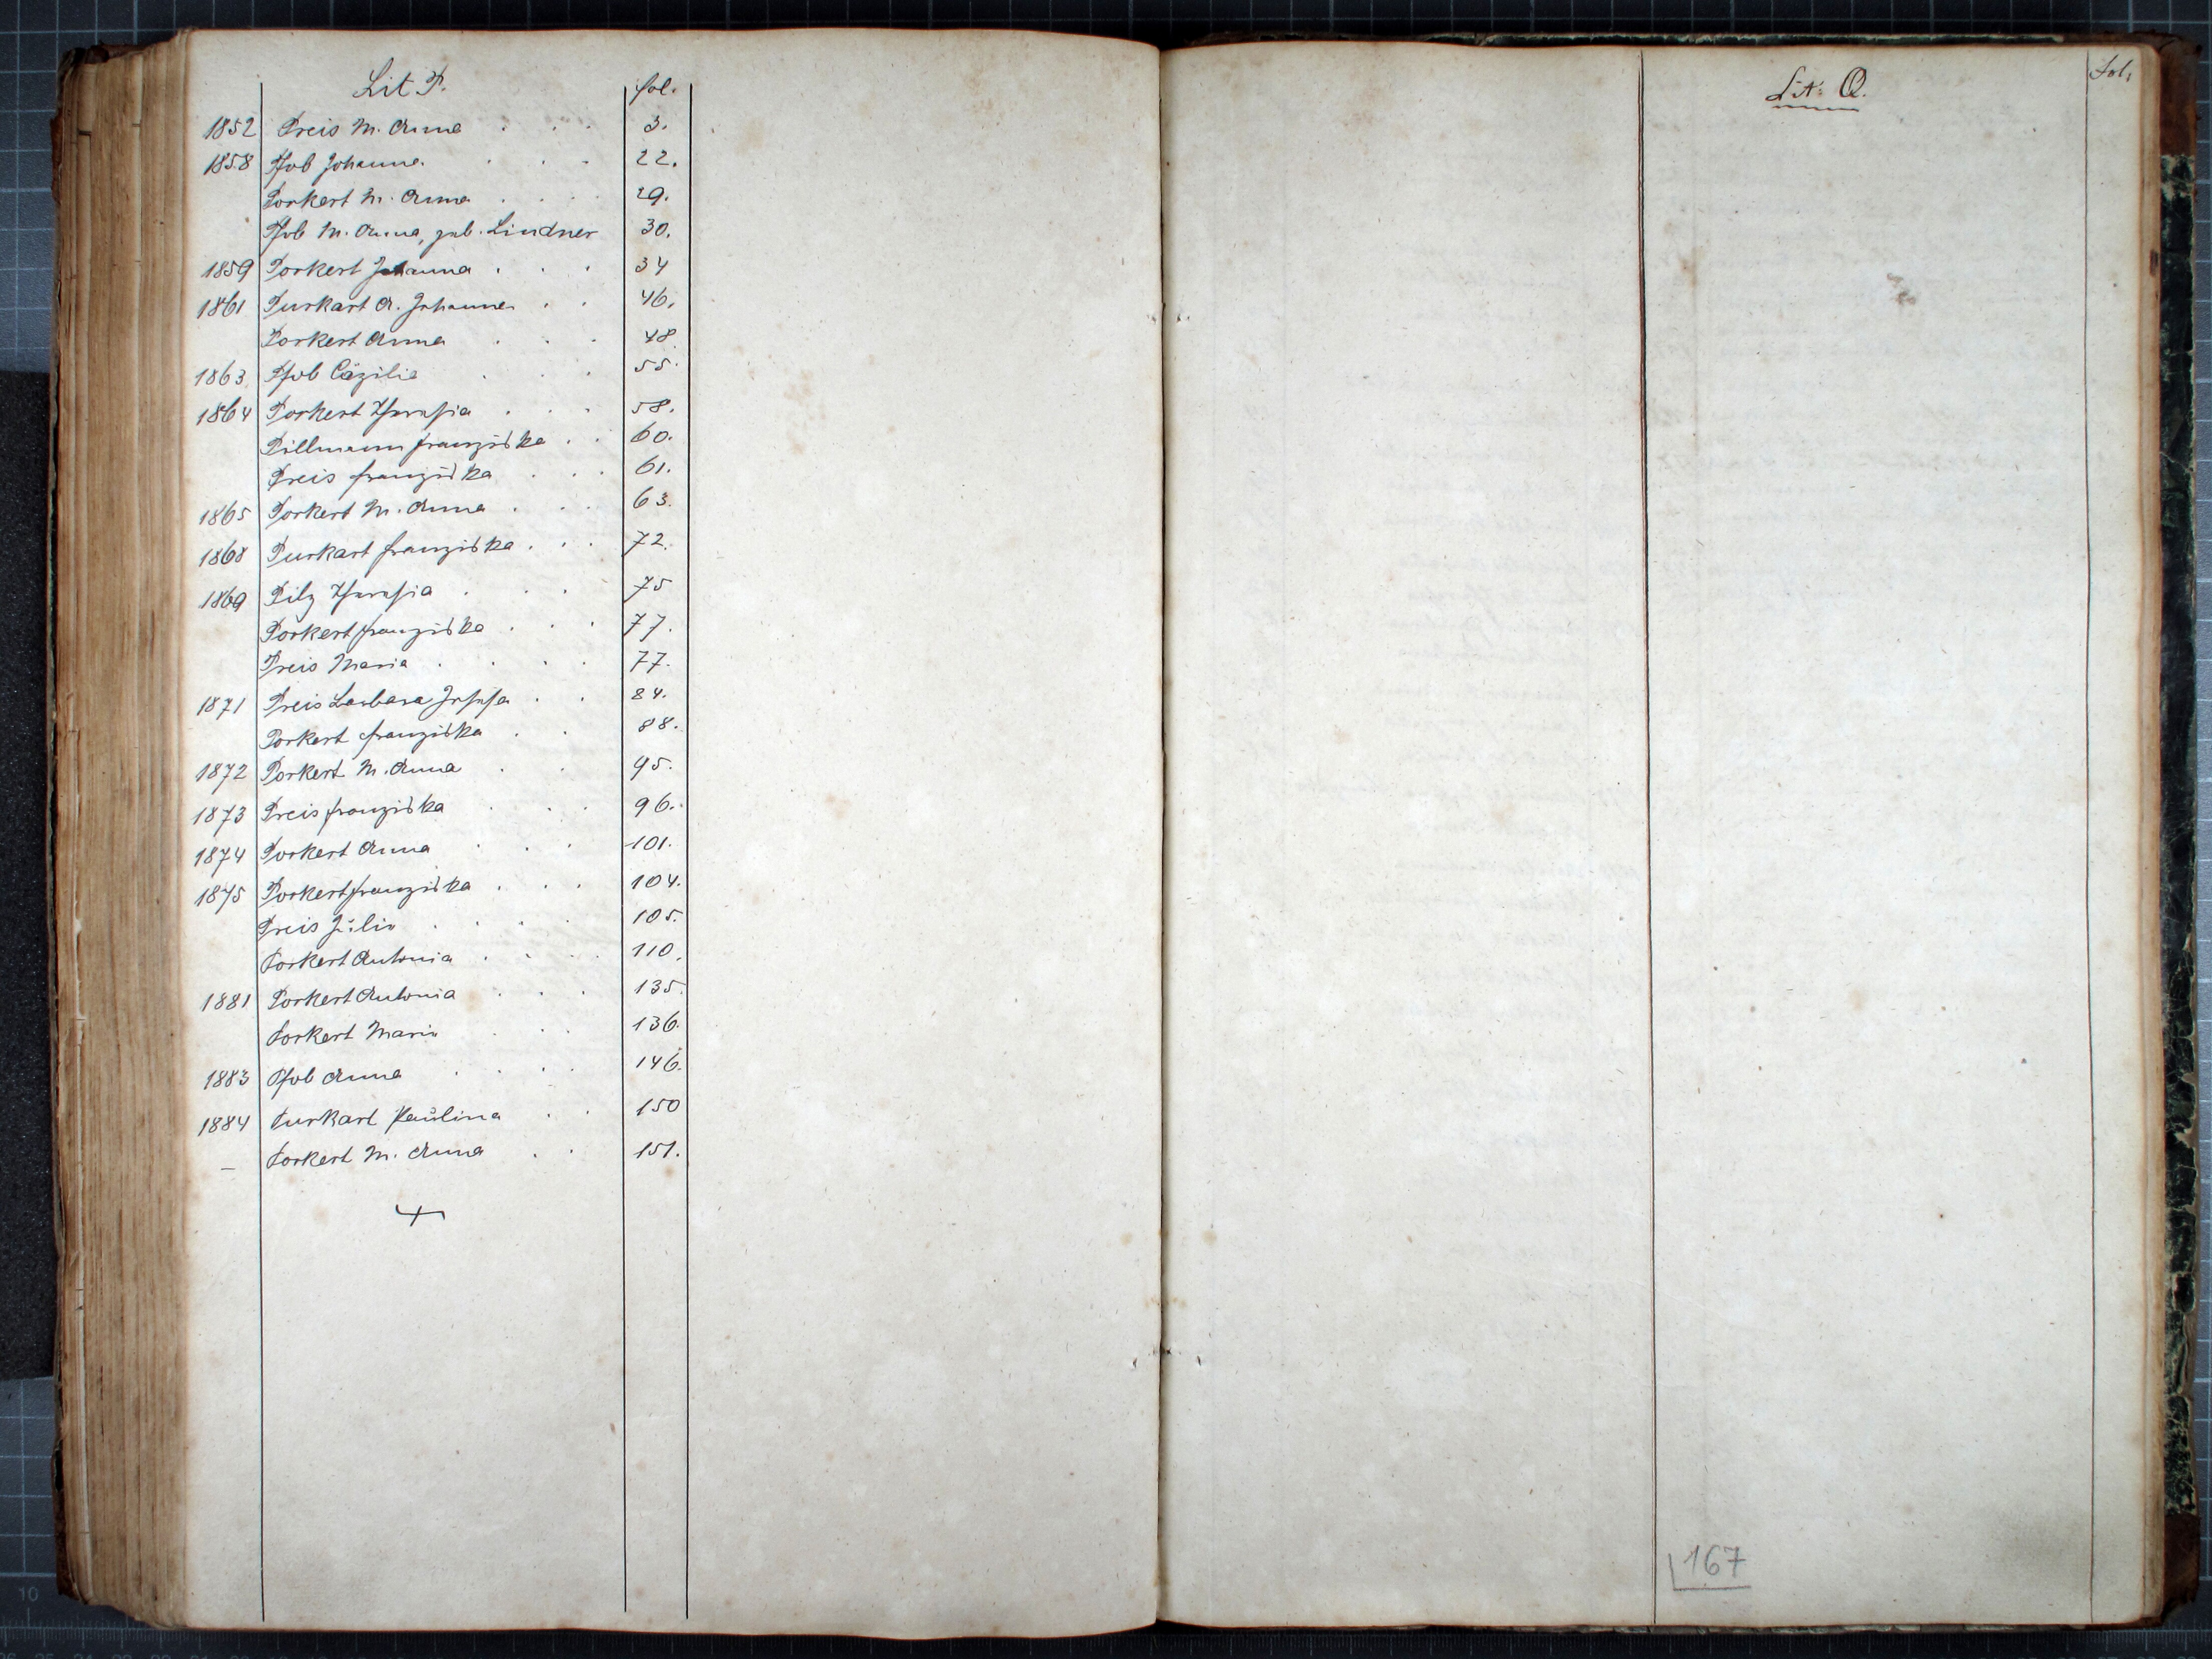 Lit P. fol.
1852 Preis M. Anna . . . 3.
1858 Pfob Johanna . . . 22.
Porkert M. Anna . . . . 29.
Pfob M. Anna, geb. Lindner 30.
1859 Porkert Johanna . . . 34
1861 Purkart A. Johanna . . 46.
Porkert Anna . . . 48.
1863. Pfob Cäzilia . . . 55.
1864 Porkert Theresia . . . 58.
Pillmann Franziska . . 60.
Preis Franziska . . . 61.
1865 Porkert M. Anna . . . 63.
1868 Purkart Franziska . . . 72.
1869 Pilz Theresia . . . 75
Porkert Franziska . . . 77.
Preis Maria . . . . 77.
1871 Preis Barbara Josefa . . 84.
Porkert Franziska . . 88.
1872 Porkert M. Anna . . 95.
1873 Preis Franziska . . . 96.
1874 Porkert Anna . . . 101.
1875 Porkert Franziska . . . 104.
Preis Julia . . . . 105.
Porkert Antonia . . . . 110.
1881 Porkert Antonia . . . 135.
Porkert Maria . . . 136.
1883 Pfob Anna . . . . 146.
1884 Purkart Paulina . . 150
– Porkert M. Anna . . 151.
Lit. Q. Fol.
167